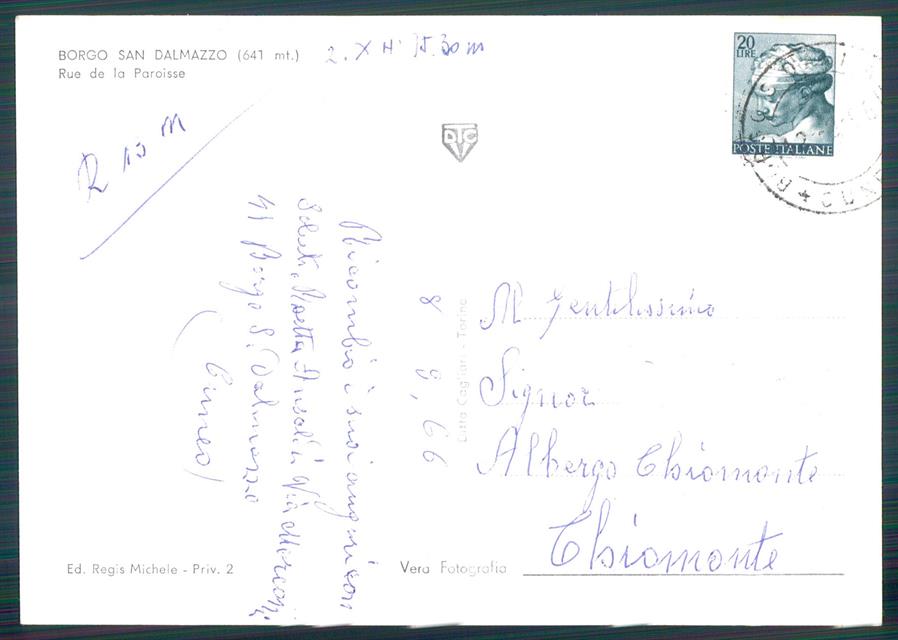 BORGO SAN DALMAZZO (641 mt.)
Rue de la Paroisse
20
LIRE
POSTE ITALIANE
DTC
Ricambio i suoi auguri con
Saluti, Rosetta
Via Marconi
41 Borgo S. Dalmazzo
(Cuneo)
8 9, 66
Ditta Cagliari - Torino
M Gentilissimo
Signor
Albergo Chiomonte
Chiomonte
Ed. Regis Michele - Priv. 2
Vera Fotografia